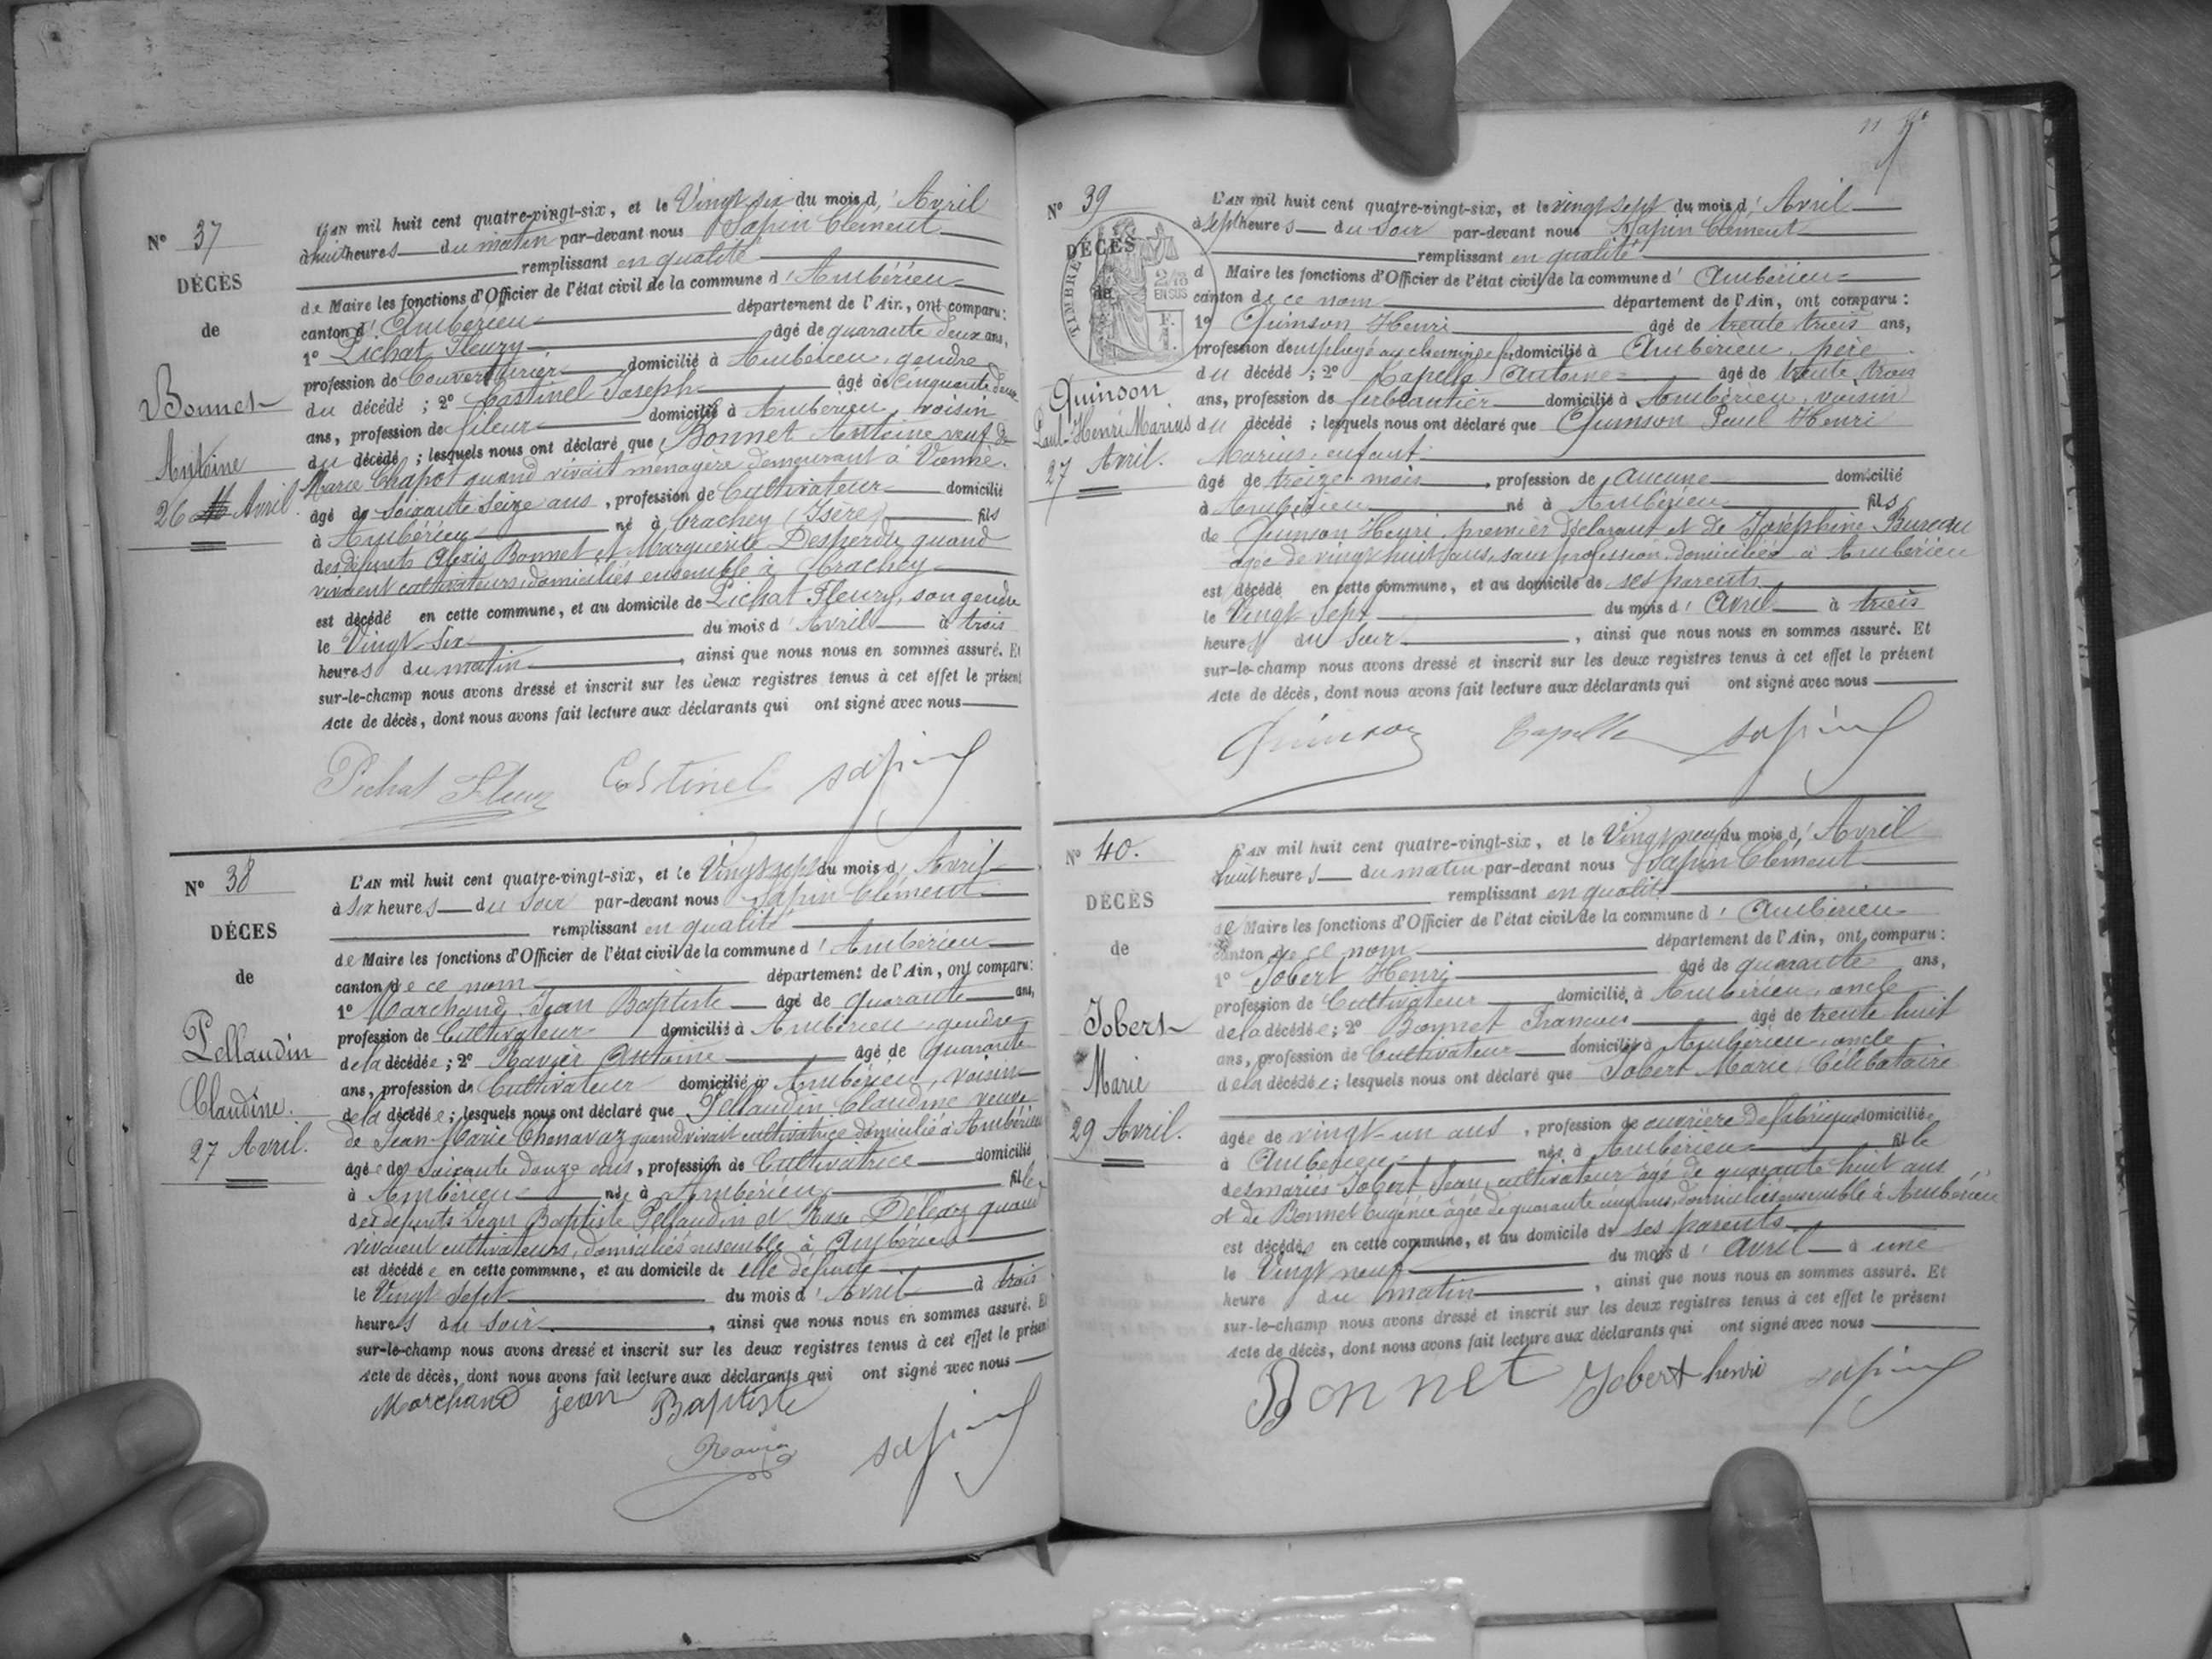 N° 37
DÉCÈS
de
Bonnet
Antoine
26 Avril.
L'AN mil huit cent quatre-vingt-six, et le Vingt six du mois d' Avril
à huit heures du matin par-devant nous Sapin Clément
remplissant en qualité
de Maire les fonctions d'Officier de l'état civil de la commune d' Ambérieu
canton d' Ambérieu département de l'Ain, ont comparu:
1° Pichat Fleury âgé de quarante deux ans,
profession de Couverturier domicilié à Ambérieu, gendre
du décédé ; 2° Costinel Joseph âgé de cinquante deux
ans, profession de fileur domicilié à Ambérieu, voisin
du décédé ; lesquels nous ont déclaré que Bonnet Antoine veuf de
Marie Chapot quand vivait ménagère demeurant à Vienne.
âgé de Soixante Seize ans, profession de Cultivateur domicilié
à Ambérieu né à Crachey (Isère) fils
des défunts Alexis Bonnet et Marguerite Desperdu quand
vivaient cultivateurs, domiciliés ensemble à Crachey
est décédé en cette commune, et au domicile de Pichat Fleury, son gendre
le Vingt-Six du mois d' Avril à trois
heures du matin, ainsi que nous nous en sommes assuré. Et
sur-le-champ nous avons dressé et inscrit sur les deux registres tenus à cet effet le présent
Acte de décès, dont nous avons fait lecture aux déclarants qui ont signé avec nous
Pichat Fleury Costinel Sapin
N° 38
DÉCÈS
de
Pellaudin
Claudine.
27 Avril.
L'AN mil huit cent quatre-vingt-six, et le Vingt sept du mois d' Avril
à six heures du soir par-devant nous Sapin Clément
remplissant en qualité
de Maire les fonctions d'Officier de l'état civil de la commune d' Ambérieu
canton de ce nom département de l'Ain, ont comparu:
1° Marchand Jean Baptiste âgé de quarante ans,
profession de Cultivateur domicilié à Ambérieu, gendre
de la décédée ; 2° Ravier Antoine âgé de quarante
ans, profession de Cultivateur domicilié à Ambérieu, voisin
de la décédée ; lesquels nous ont déclaré que Pellaudin Claudine veuve
de Jean-Marie Chenavaz quand vivait cultivatrice domicilié à Ambérieu
âgée de soixante douze ans, profession de Cultivatrice domicilié
à Ambérieu née à Ambérieu fille
des défunts Jean Baptiste Pellaudin et Rose Déléaz quand
vivaient cultivateurs, domiciliés ensemble à Ambérieu
est décédée en cette commune, et au domicile de elle défunte
le Vingt Sept du mois d' Avril à trois
heures du Soir, ainsi que nous nous en sommes assuré. Et
sur-le-champ nous avons dressé et inscrit sur les deux registres tenus à cet effet le présent
Acte de décès, dont nous avons fait lecture aux déclarants qui ont signé avec nous
Marchand jean Baptiste
Ravier Sapin
N° 39
DÉCÈS
de
TIMBRE
2/10 EN SUS
Quinson
Paul-Henri Marius
27 Avril.
L'AN mil huit cent quatre-vingt-six, et le vingt sept du mois d' Avril
à sept heures du soir par-devant nous Sapin Clément
remplissant en qualité
d Maire les fonctions d'Officier de l'état civil de la commune d' Ambérieu
canton de ce nom département de l'Ain, ont comparu :
1° Quinson Henri âgé de trente trois ans,
profession d'employé au chemin de fer domicilié à Ambérieu, père
du décédé ; 2° Capella Antoine âgé de trente trois
ans, profession de ferblantier domicilié à Ambérieu, voisin
du décédé ; lesquels nous ont déclaré que Quinson Paul Henri
Marius, enfant
âgé de treize mois, profession de aucune domicilié
à Ambérieu né à Ambérieu fils
de Quinson Henri, premier déclarant et de Joséphine Bureau
âgée de vingt huit ans, sans profession, domiciliés à Ambérieu
est décédé en cette commune, et au domicile de ses parents
le Vingt Sept du mois d' Avril à trois
heures du Soir, ainsi que nous nous en sommes assuré. Et
sur-le-champ nous avons dressé et inscrit sur les deux registres tenus à cet effet le présent
Acte de décès, dont nous avons fait lecture aux déclarants qui ont signé avec nous
Quinson Capella Sapin
N° 40.
DÉCÈS
de
Jobert
Marie
29 Avril.
L'AN mil huit cent quatre-vingt-six, et le Vingt neuf du mois d' Avril
à huit heures du matin par-devant nous Sapin Clément
remplissant en qualité
de Maire les fonctions d'Officier de l'état civil de la commune d' Ambérieu
canton de ce nom département de l'Ain, ont comparu :
1° Jobert Henri âgé de quarante ans,
profession de Cultivateur domicilié à Ambérieu, oncle
de la décédée ; 2° Bonnet François âgé de trente huit
ans, profession de Cultivateur domicilié à Ambérieu, oncle
de la décédée ; lesquels nous ont déclaré que Jobert Marie, Célibataire
âgée de vingt-un ans, profession de ouvrière de fabrique domiciliée
à Ambérieu née à Ambérieu fille
des mariés Jobert Jean, cultivateur âgé de quarante huit ans
et de Bonnet Eugénie âgée de quarante cinq ans, domiciliés ensemble à Ambérieu
est décédée en cette commune, et au domicile de ses parents
le Vingt neuf du mois d' Avril à une
heure du matin, ainsi que nous nous en sommes assuré. Et
sur-le-champ nous avons dressé et inscrit sur les deux registres tenus à cet effet le présent
Acte de décès, dont nous avons fait lecture aux déclarants qui ont signé avec nous
Bonnet Jobert henri Sapin